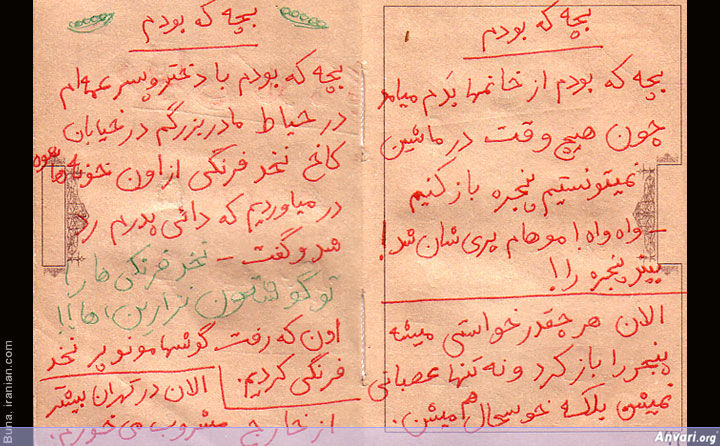 بچه که بودم
بچه که بودم از خانمها بدم میامد
چون هیچ وقت در ماشین
نمیتونستیم پنجره باز کنیم
ـ واه واه! موهام پری شان شد!
ببند پنجره را!
الان هر چقدر خواستی میشه
پنجره را باز کرد و نه تنها عصبانی
نمیشن بلکه خوشحال هم میشن.
بچه که بودم
بچه که بودم با دختر و پسر عمه ام
در حیاط مادربزرگم در خیابان
کاخ نخد فرنگی از اون
در میاوردیم که دائی پدرم رد
شد و گفت ـ
نخد فرنگی ها را
تو گوشتون نزارین، ها!!
اون که رفت گوشهامونو پر نخد
فرنگی کردیم. الان در تهران بیشتر
از خارج مشروب می خورم.
Buna. iranian.com
Anvari.org